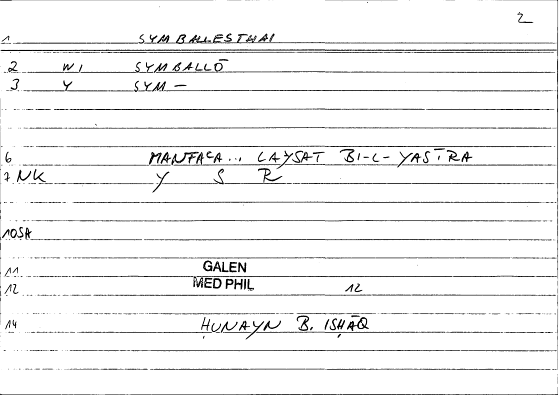 2
1 SYMBALLESTHAI
2 WI SYMBALLŌ
3 Y SYM—
6 MANFACA... LAYSAT BI-L-YASĪRA
7 NK Y S R
10 SA
11 GALEN
12 MED PHIL 12
14 ḤUNAYN B. ISḤĀQ